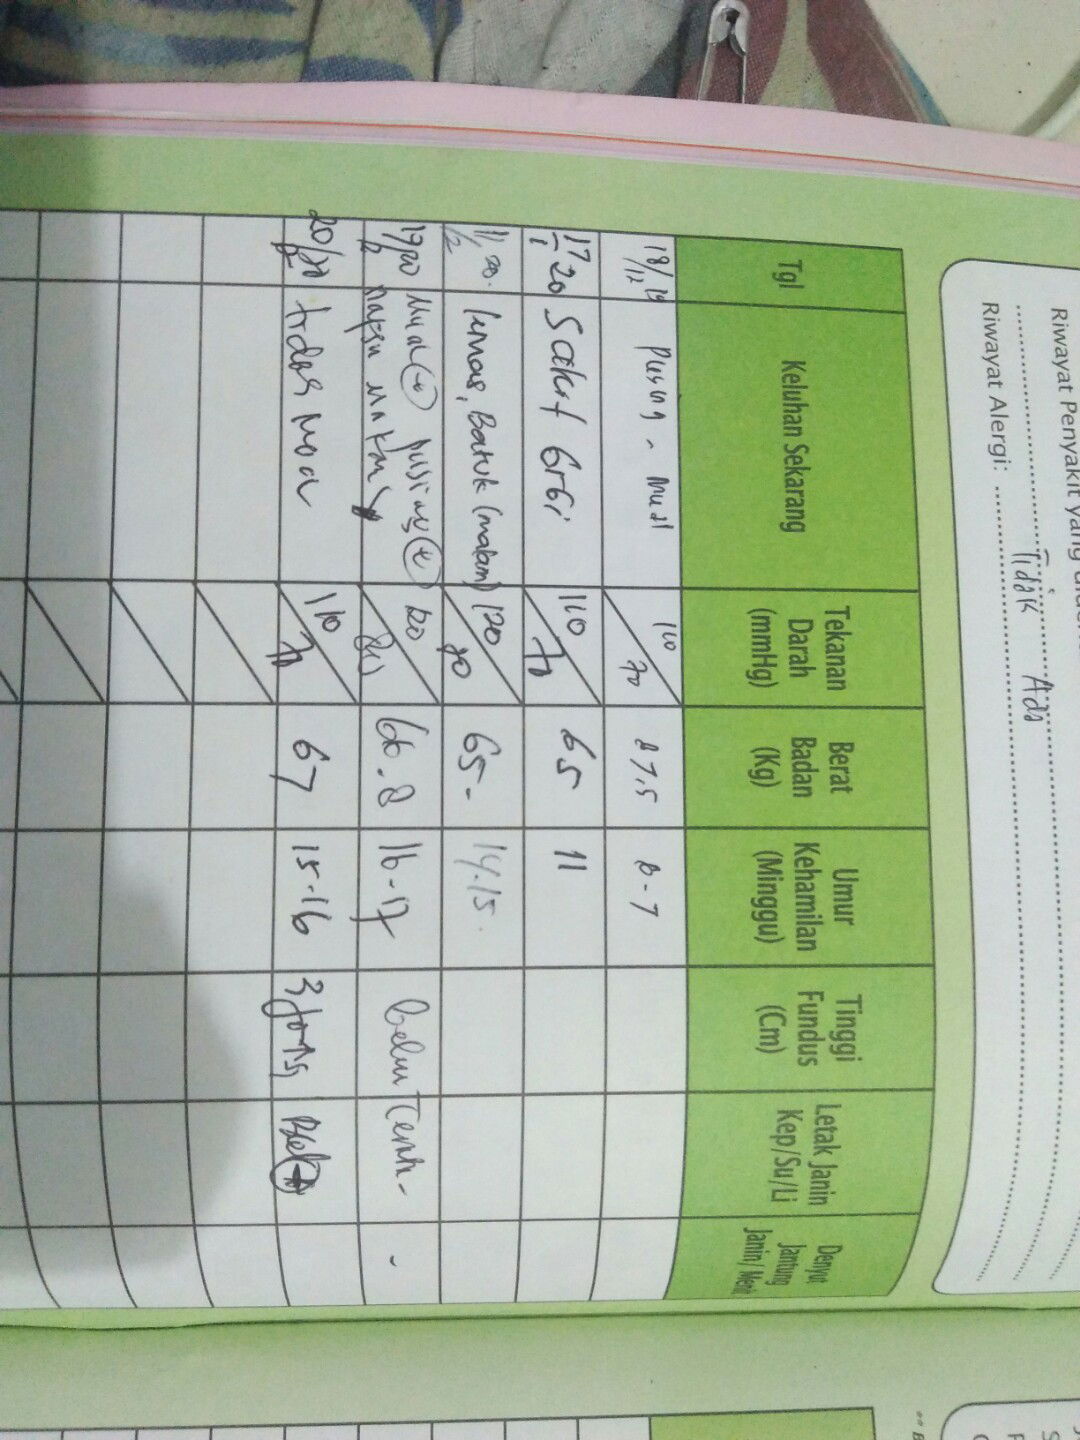 Riwayat Penyakit yang
Riwayat Alergi: Tidak Ada
Tgl
Keluhan Sekarang
Tekanan Darah (mmHg)
Berat Badan (Kg)
Umur Kehamilan (Minggu)
Tinggi Fundus (Cm)
Letak Janin Kep/Su/Li
Denyut Jantung Janin/
18/12 19 Pusing, Mual 110/70 6-7
17/1 20 Sakit Gigi 110/70 65 11
11/2 20. lemas, Batuk (malam) 120/80 65- 14-15.
Mual (+) pusing (+) 120/80 66.8 16-17 -
nafsu makan ↓
110/70 67 15-16 3 jari